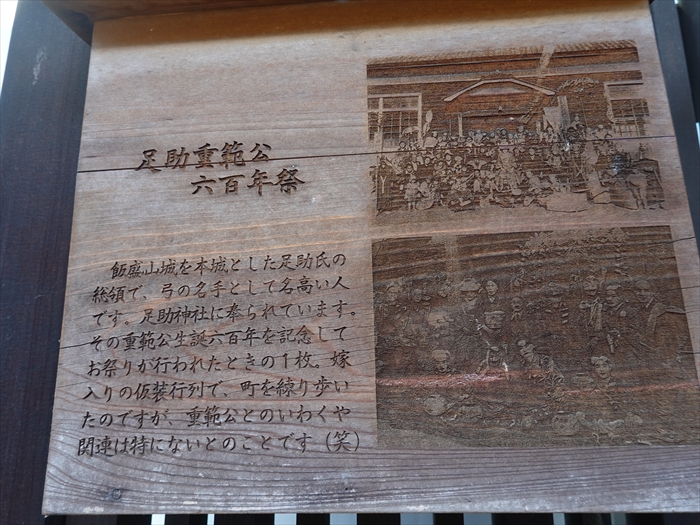 足助重範公
六百年祭
飯盛山城を本城とした足助氏の
総領で、弓の名手として名高い人
です。足助神社に奉られています。
その重範公生誕六百年を記念して
お祭りが行われたときの1枚。嫁
入りの仮装行列で、町を練り歩い
たのですが、重範公とのいわくや
関連は特にないとのことです（笑）